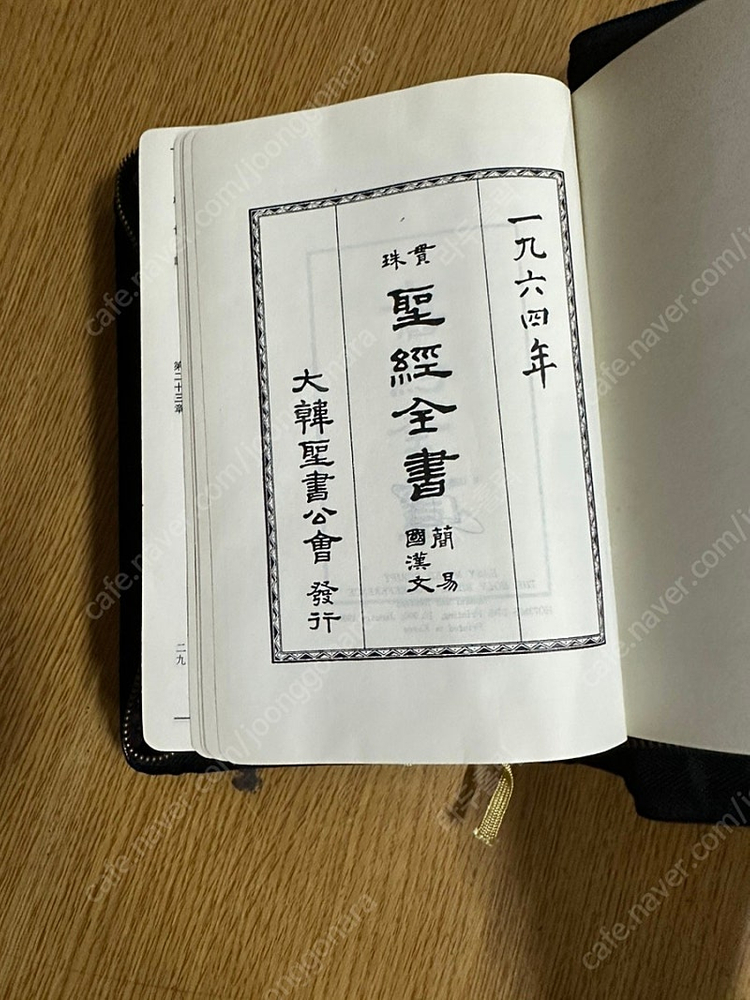 一九六四年
貫珠
聖經全書
簡易
國漢文
大韓聖書公會 發行
第二十三章
二九
cafe.naver.com/joonggonara